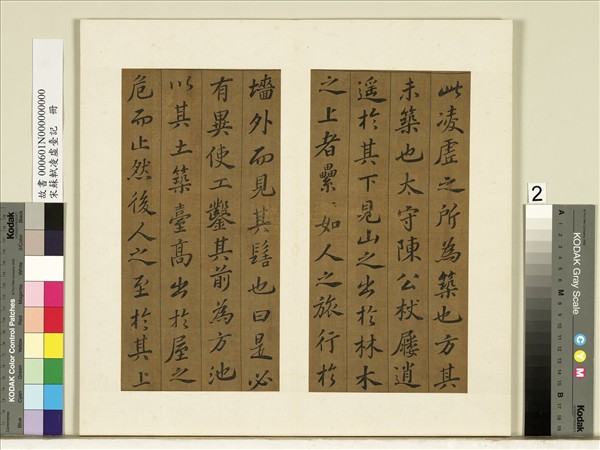 此凌虛之所為築也方其
未築也太守陳公杖屨逍
遥於其下見山之出於林木
之上者纍々如人之旅行於
墻外而見其髻也曰是必
有異使工鑿其前為方池
以其土築臺高出於屋之
危而止然後人之至於其上
故書 000601N000000000
宋蘇軾凌虛臺記 冊
KODAK Color Control Patches
Kodak
Blue Cyan Green Yellow Red Magenta White Black
2
KODAK Gray Scale
C Y M
Kodak
A 1 2 3 4 5 6 M 8 9 10 11 12 13 14 15 B 17 18 19